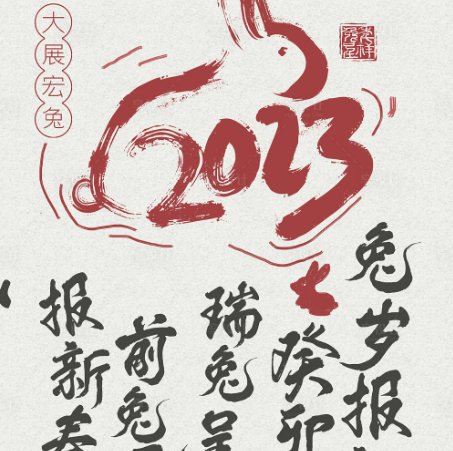 大展宏兔
2023
兔岁报
癸卯
瑞兔呈
前兔
报新春